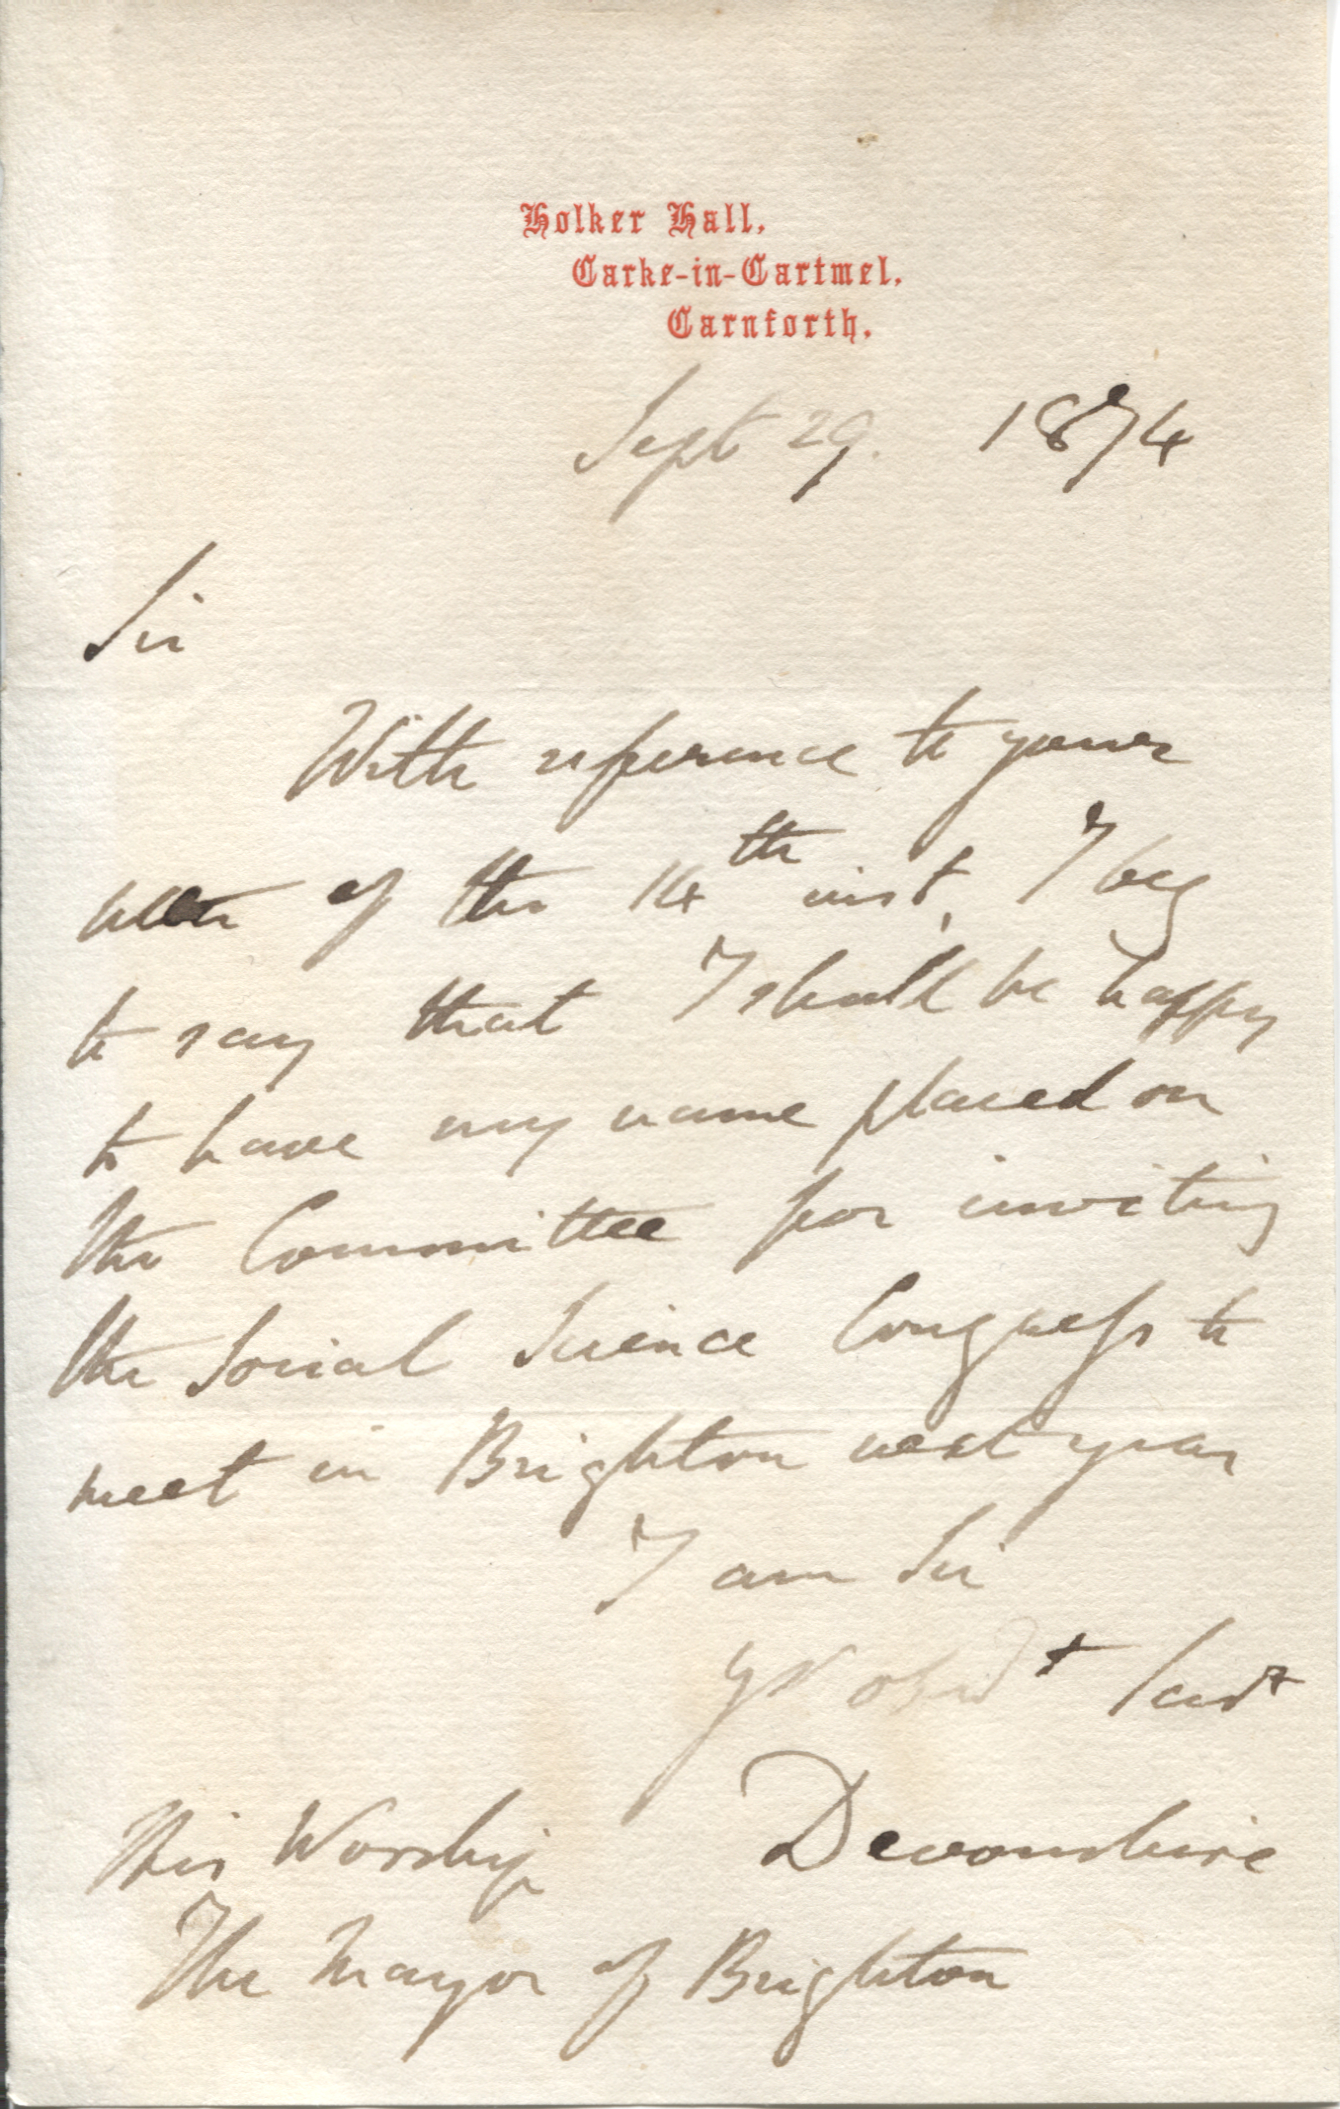 Holker Hall,
Carke-in-Cartmel,
Carnforth.
Sept 29. 1874
Sir
With reference to your
of the 14th inst, I beg
to say that I shall be happy
to have my name placed on
the Committee for inviting
the Social Science Congress to
meet in Brighton next year
I am Sir
Yr obedt servt
Devonshire
His Worship
The Mayor of Brighton